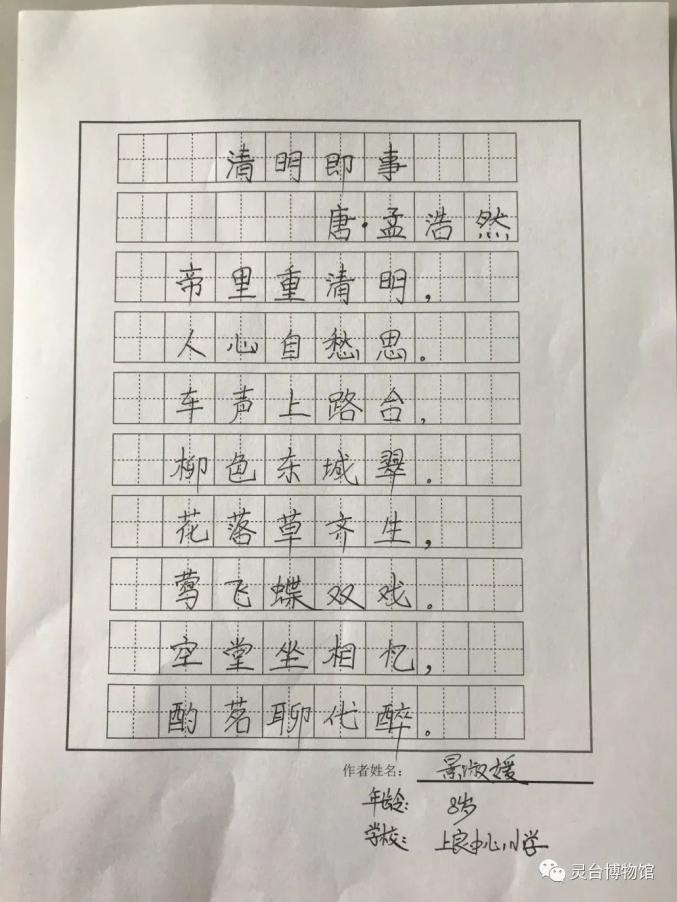 清明即事
唐·孟浩然
帝里重清明，
人心自愁思。
车声上路台，
柳色东城翠。
花落草齐生，
莺飞蝶双戏。
空堂坐相忆，
酌茗聊代醉。
作者姓名：景淑媛
年龄：8岁
学校：上良中心小学
灵台博物馆